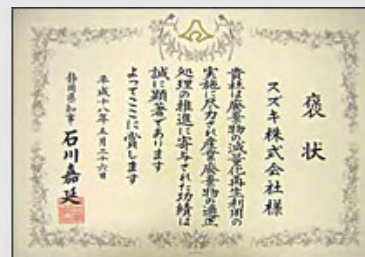 褒状
スズキ株式会社様
貴社は廃棄物の減量化再生利用の
実施に尽力され産業廃棄物の適正
処理の推進に寄与された功績は
誠に顕著であります
よってここに賞します
平成十八年五月二十六日
静岡県知事 石川嘉延